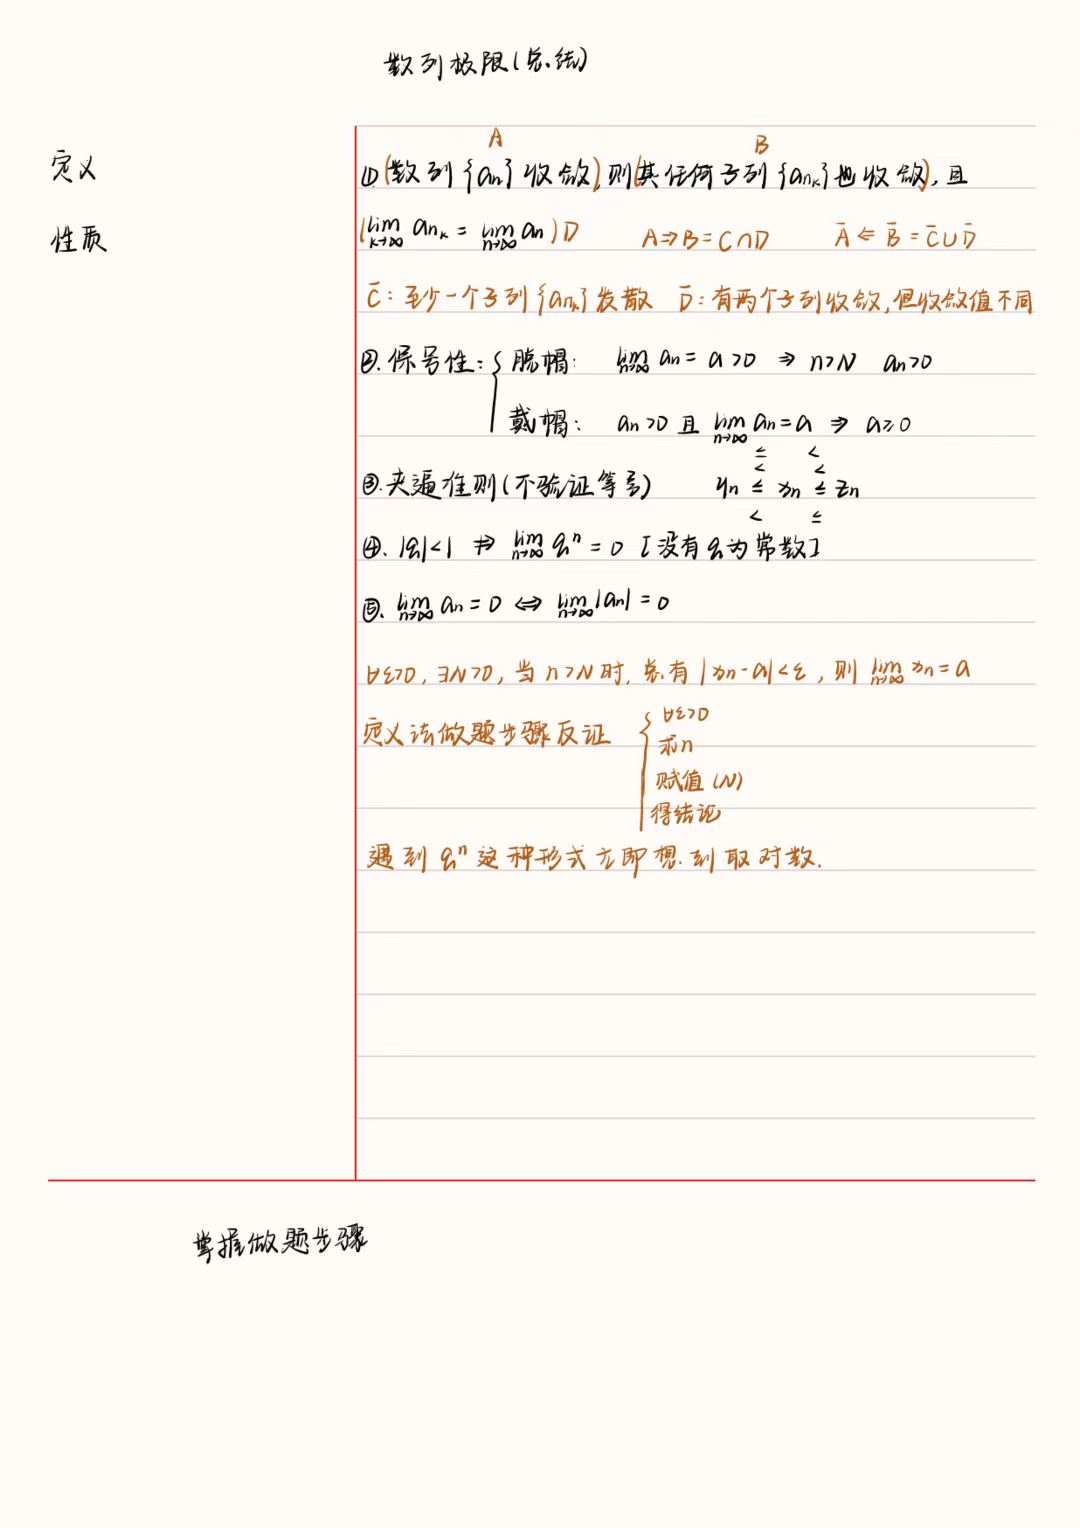 数列极限(总结)
定义
性质
A
B
①(数列{an}收敛),则(其任何子列{ank}也收敛),且
(lim k→∞ ank = lim n→∞ an)D A⇒B=C∩D Ā⇐B̄=C̄∪D̄
C̄:至少一个子列{ank}发散 D̄:有两个子列收敛,但收敛值不同
②.保号性:{ 脱帽: lim n→∞ an=a>0 ⇒ n>N an>0
戴帽: an>0且 lim n→∞ an=a ⇒ a≥0
≤ <
< <
③.夹逼准则(不验证等号) yn ≤ xn ≤ zn
< ≤
④.|q|<1 ⇏ lim n→∞ qⁿ=0 [没有q为常数]
⑤. lim n→∞ an=0 ⇔ lim n→∞ |an|=0
∀ε>0,∃N>0,当n>N时,总有|xn-a|<ε,则 lim n→∞ xn=a
定义法做题步骤反证 { ∀ε>0
求n
赋值(N)
得结论
遇到qⁿ这种形式立即想到取对数.
掌握做题步骤